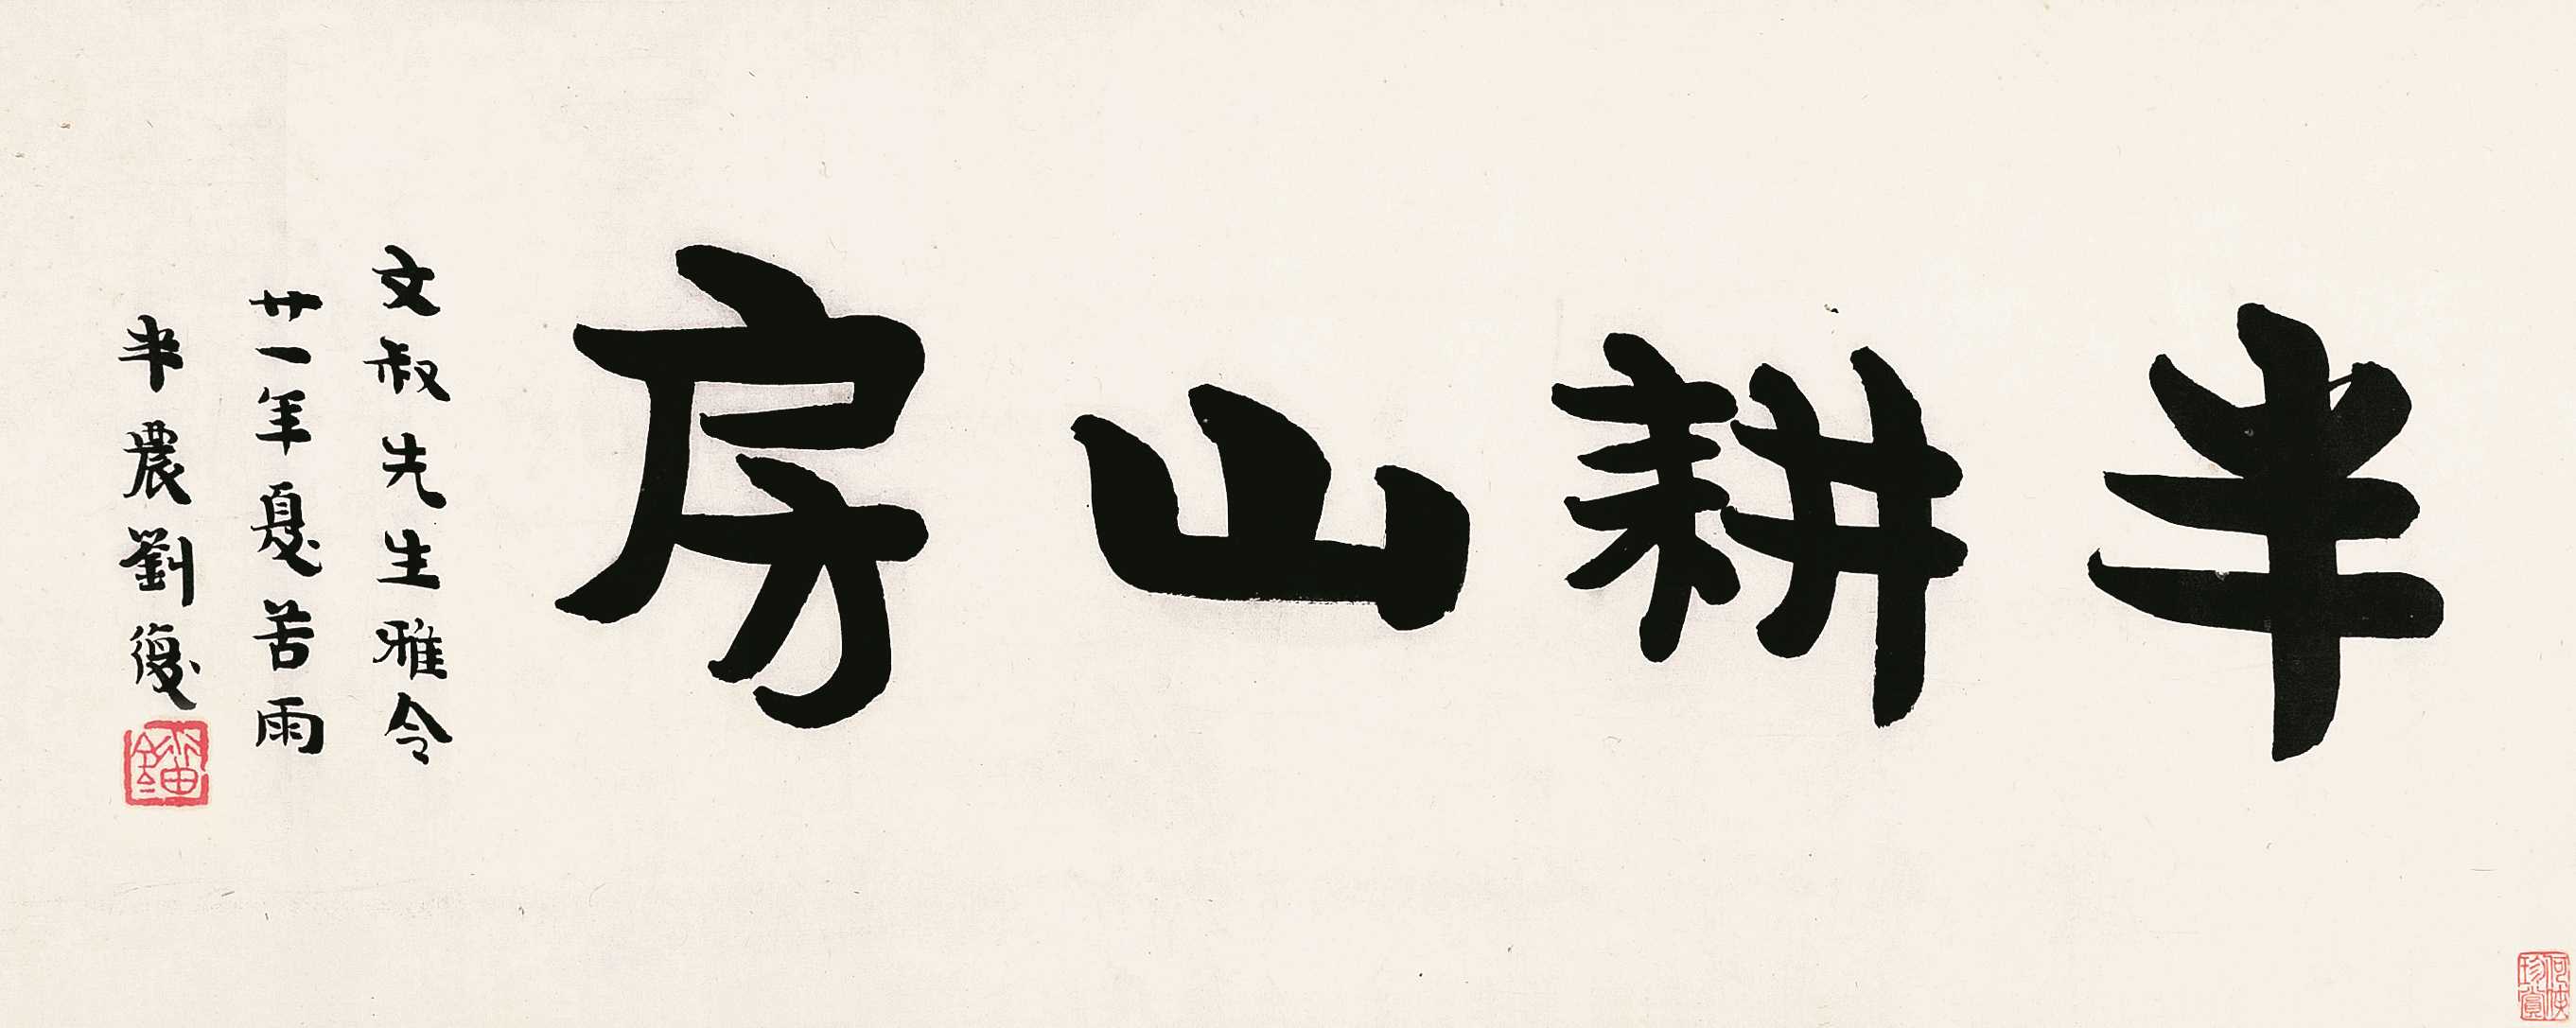 半耕山房
文叔先生雅令
廿一年夏苦雨
半農劉復